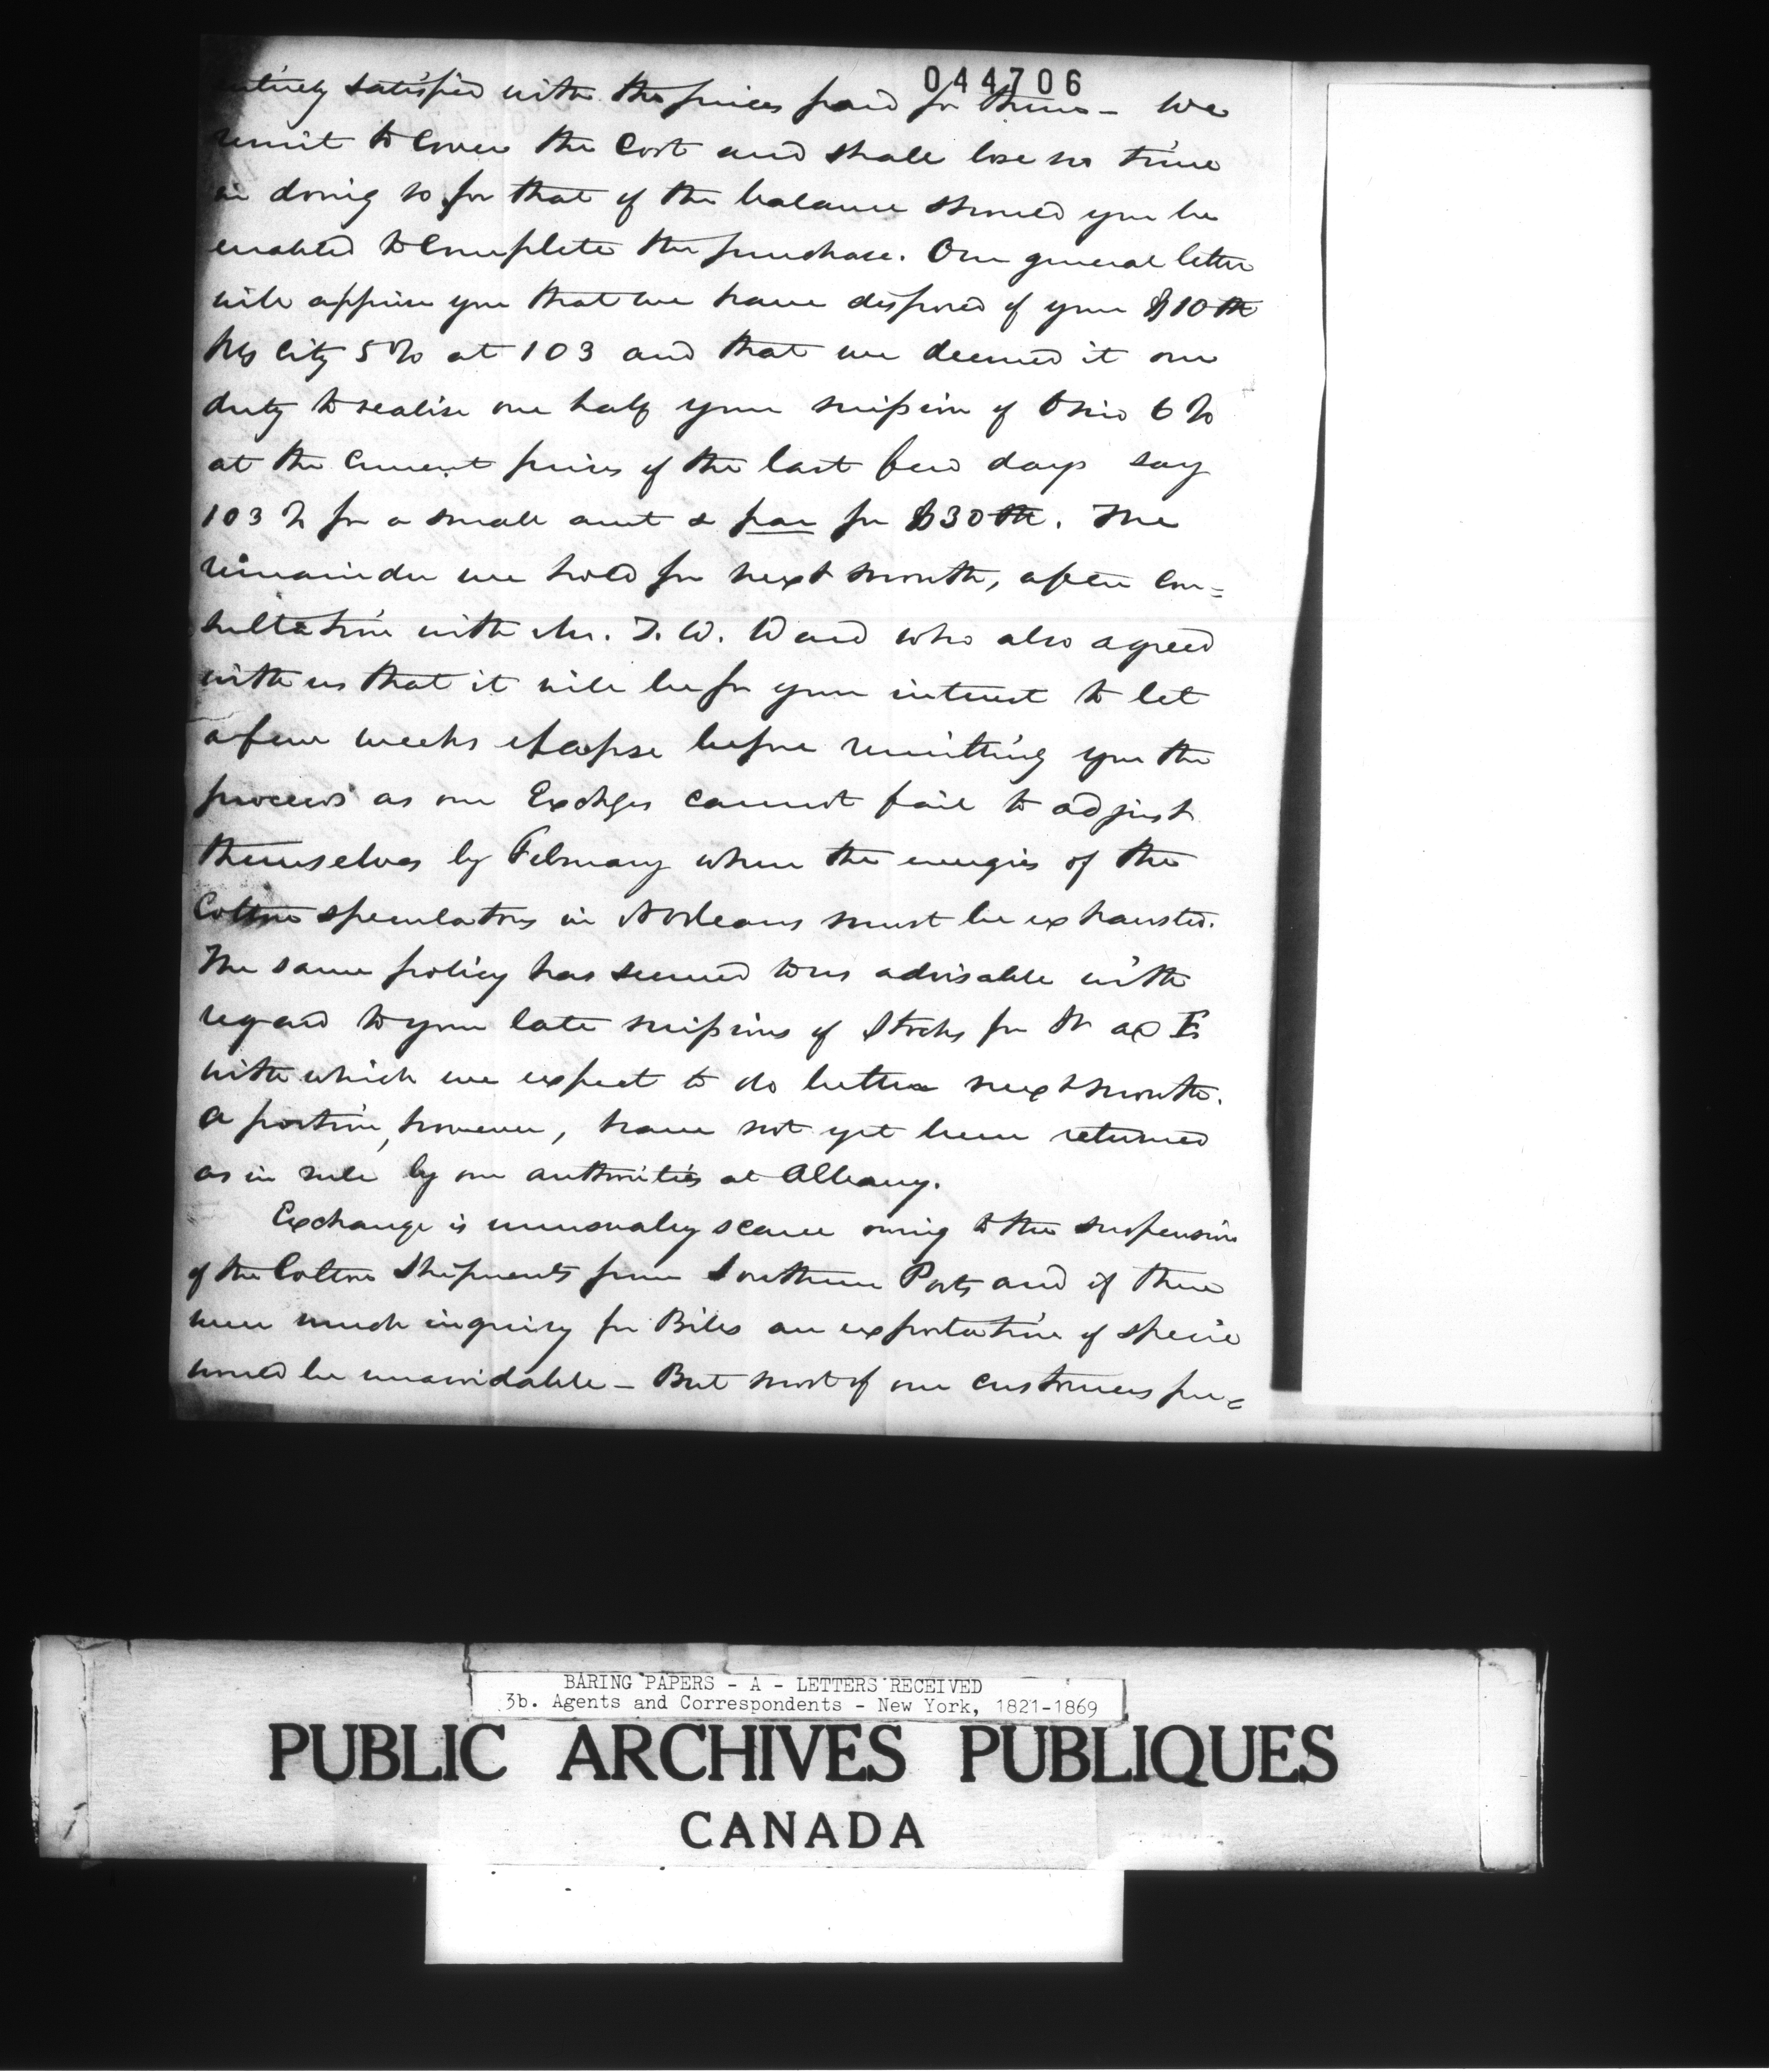 044706
entirely satisfied with the prices paid for them – We
remit to cover the Cost and shall lose no time
in doing so for that of the balance should you be
enabled to Complete the purchase. Our general letter
will apprise you that we have disposed of your $10 m
City 5% at 103 and that we deemed it our
duty to realise one half your mission of Ohio 6%
at the Current prices of the last few days say
103 % for a small amt & par for $30 m. The
remainder we hold for next month, after Con=
sultation with Mr. T. W. Ward who also agreed
with us that it will be for your interest to let
a few weeks elapse before remitting you the
proceeds as our Exchges cannot fail to adjust
themselves by February when the energies of the
Cotton speculators in NOrleans must be exhausted.
The same policy has seemed to us advisable with
regard to your late missions of Stocks for
with which we expect to do better next month.
A portion, however, have not yet been returned
as in rule by our authorities at Albany.
Exchange is unusually scarce owing to the suspension
of the Cotton Shipments from Southern Ports and if there
were much inquiry for Bills an exportation of specie
would be unavoidable – But most of our customers pre=
BARING PAPERS - A - LETTERS RECEIVED
3b. Agents and Correspondents - New York, 1821-1869
PUBLIC ARCHIVES PUBLIQUES
CANADA